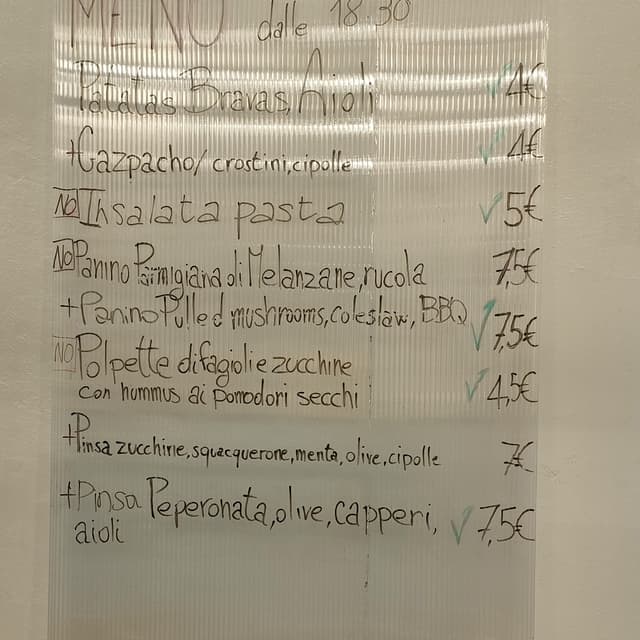 MENÙ dalle 18.30
Patatas Bravas, Aioli ✓4€
+Gazpacho/ crostini, cipolle ✓4€
NO Insalata pasta ✓5€
NO Panino Parmigiana di Melanzane, rucola 7,5€
+Panino Pulled mushrooms, coleslaw, BBQ ✓7,5€
NO Polpette di fagioli e zucchine
con hummus ai pomodori secchi ✓4,5€
+Pinsa zucchine, squacquerone, menta, olive, cipolle 7€
+Pinsa Peperonata, olive, capperi, ✓7,5€
aioli